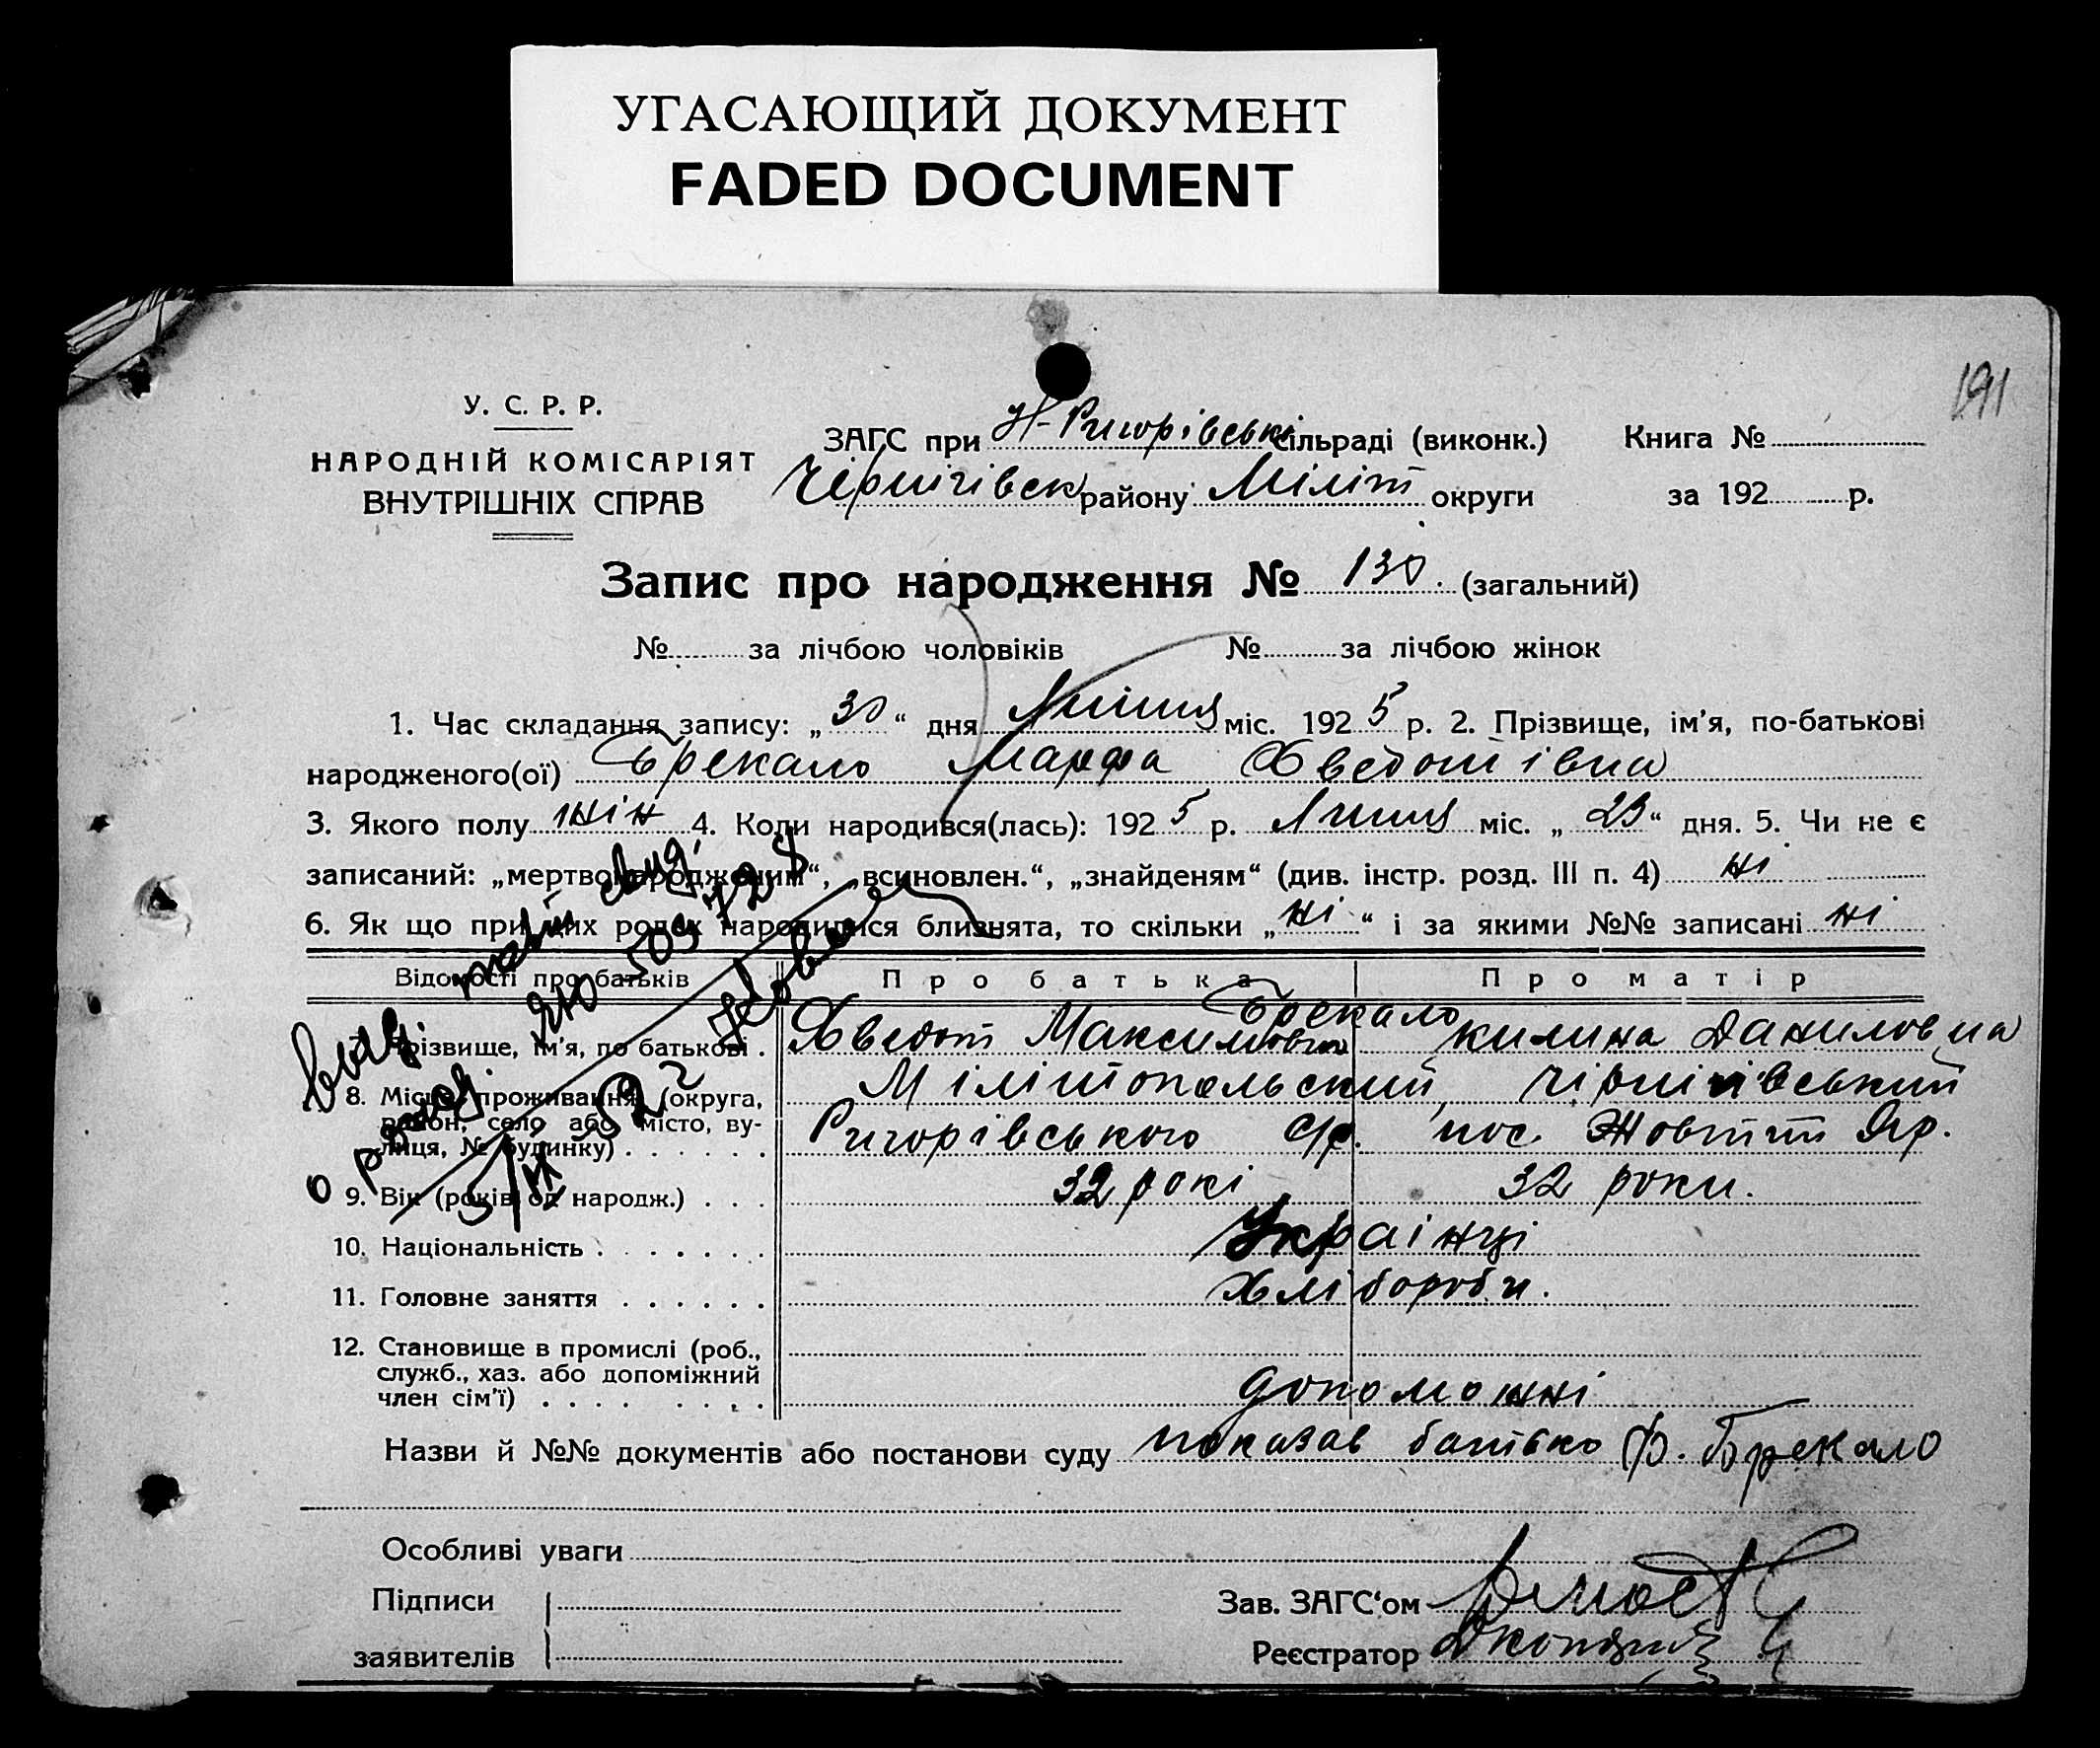 УГАСАЮЩИЙ ДОКУМЕНТ
FADED DOCUMENT
191
У. С. Р. Р.
НАРОДНІЙ КОМІСАРІЯТ
ВНУТРІШНІХ СПРАВ
ЗАГС при Н-Ригорівські сільраді (виконк.) Книга №
Чернігівск району Міліт округи за 192 р.
Запис про народження № 130. (загальний)
№ за лічбою чоловіків № за лічбою жінок
1. Час складання запису: „30“ дня Липня міс. 1925 р. 2. Прізвище, ім'я, по-батькові
народженого(ої) Брекало Марфа Хведотівна
3. Якого полу жін 4. Коли народився(лась): 1925 р. Липня міс. „29“ дня. 5. Чи не є
записаний: „мертвонародженим“, „всиновлен.“, „знайденям“ (див. інстр. розд. III п. 4) ні
6. Як що при цих родах народилися близнята, то скільки „ні“ і за якими №№ записані ні
Відомості про батьків Про батька Про матір
Брекало
7. Прізвище, ім'я, по батькові . Хведот Максимович килина Даниловна
8. Місце проживання (округа, Мілітопольский, чірнігівський
район, село або місто, ву-
лиця, № будинку) . . . . . . Ригорівського с/р. пос. Жовтий Яр.
9. Вік (років од народж.) . . . 32 рокі 32 роки.
10. Національність . . . . . . . Українці
11. Головне заняття . . . . . . Хлібороби.
12. Становище в промислі (роб.,
служб., хаз. або допоміжний
член сім'ї) . . . . . . . . допоможні
Назви й №№ документів або постанови суду показав батько Ф. Брекало
Особливі уваги
Підписи Зав. ЗАГС'ом
заявителів Реєстратор